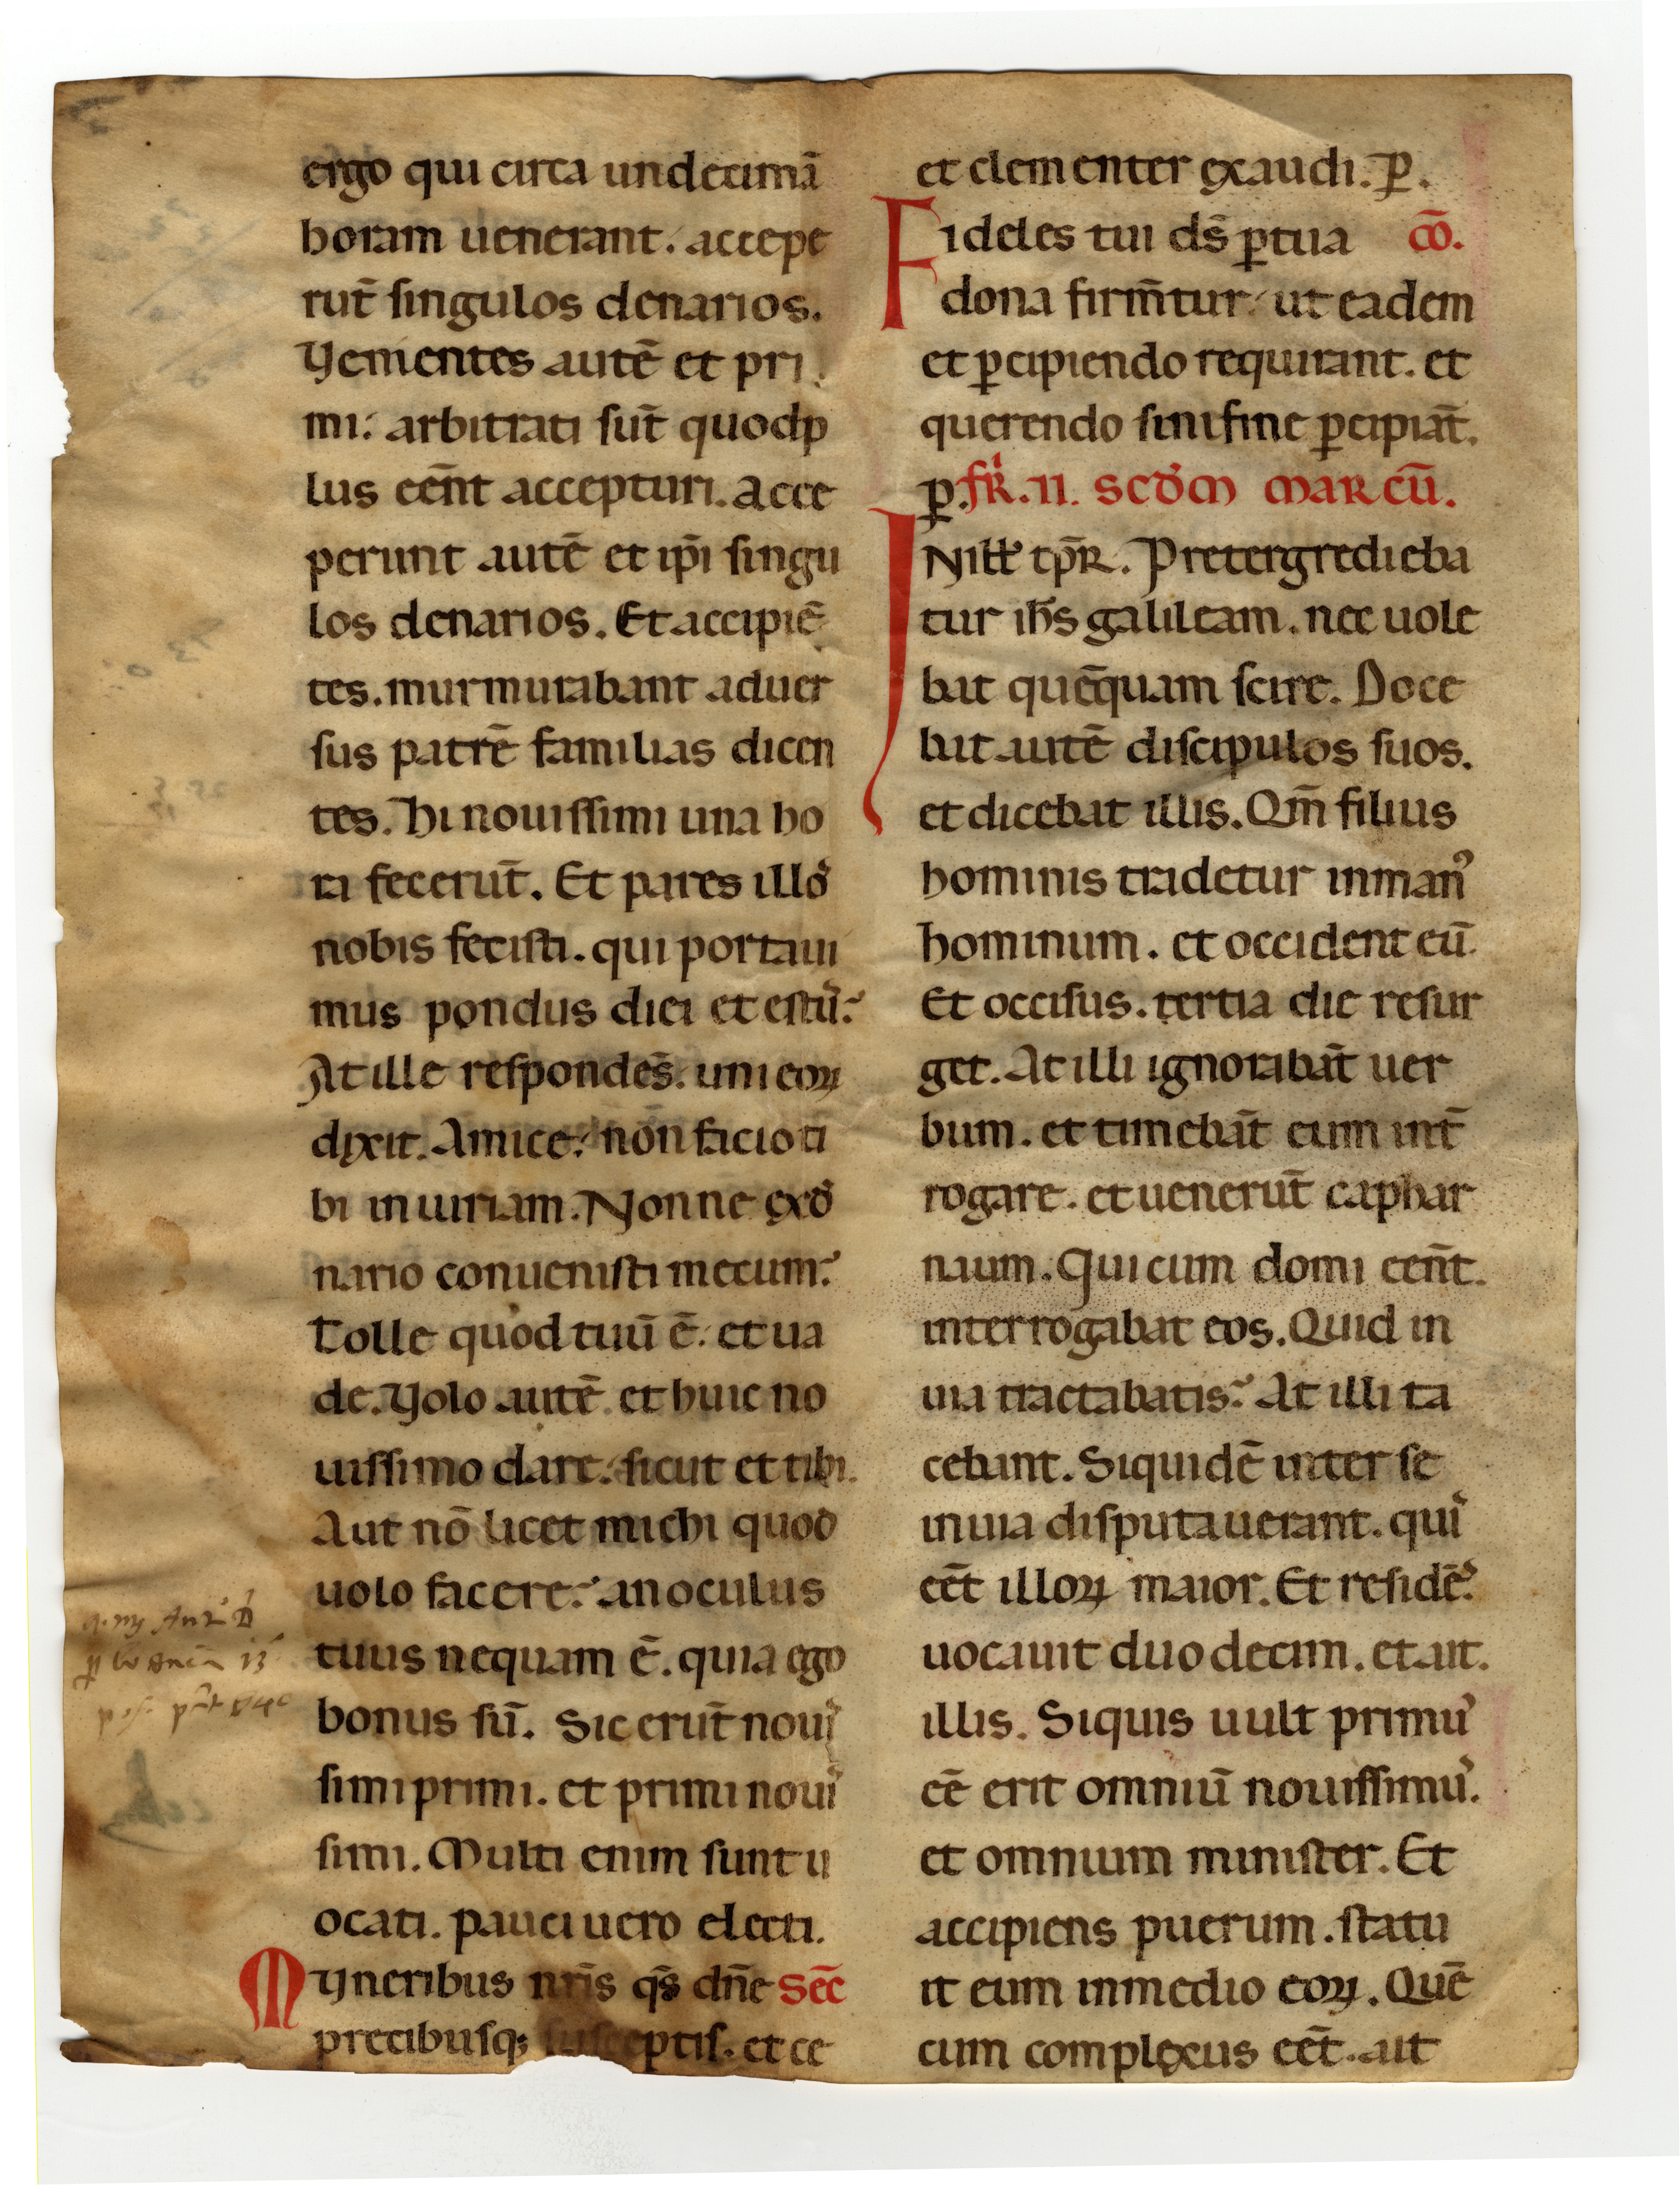 ergo qui circa undecimā
horam uenerant. accepe
rut̄ singulos denarios.
Uenientes autē et pri
mi: arbitrati sut̄ quodp
lus eēnt accepturi. Acce
perunt autē et ip̄i singu
los denarios. Et accipiē
tes. murmurabant aduer
sus patrē familias dicen
tes. Hi nouissimi una ho
ra fecerut̄. Et pares illoˢ
nobis fecisti. qui portaui
mus pondus diei et estuˢ.
At ille respondēs. uni eoꝝ
dixit. Amice. non facio ti
bi iniuriam. Nonne exď
nario conuenisti mecum?
Tolle quod tuū ē. et ua
de. Uolo autē et huic no
uissimo dare. sicut et tibi.
Aut nō licet michi quod
uolo facere? an oculus
tuus nequam ē. quia ego
bonus sū. Sic erut̄ nouiˢ
simi primi. et primi nouiˢ
simi. Multi enim sunt u
ocati. pauci uero electi.
Muneribus nr̄is qs̄ dn̄e Sēc
precibusq; susceptis. et ce
et clementer exaudi. ꝑ.
Fideles tui ds̄ ꝑ tua cō.
dona firm̄tur. ut eadem
et ꝑcipiendo requirant. et
querendo sini fine ꝑcipiat̄.
ꝑ. fr̄. II. SCDM MARCŪ.
INitt tp̄R. Pretergredieba
tur ihs̄ galileam. nec uole
bat quēquam scire. Doce
bat autē discipulos suos.
et dicebat illis. Qm̄ filius
hominis tradetur in manꝰ
hominum. et occident eū.
Et occisus. tertia die resur
get. At illi ignorabat̄ uer
bum. et timebat̄ eum int̄
rogare. et uenerut̄ caphar
naum. Qui cum domi eēnt.
interrogabat eos. Quid in
uia tractabatis? At illi ta
cebant. Siquidē inter se
in uia disputauerant. quiˢ
eēt illoꝝ maior. Et residēˢ.
uocauit duodecim. et ait.
illis. Siquis uult primuˢ
eē erit omniū nouissimuˢ.
et omnium minister. Et
accipiens puerum. statu
it eum in medio eoꝝ. Quē
cum complexus eēt. ait